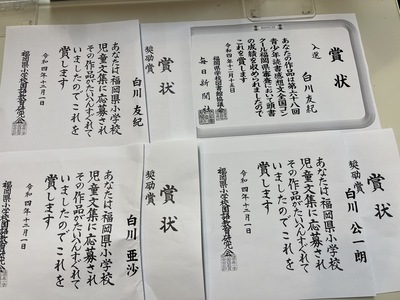 賞状
奨励賞
白川 友紀
あなたは福岡県小学校
児童文集に応募され
その作品がたいへんすぐれて
いましたのでこれを
賞します
令和四年十二月一日
福岡県小学校国語教育研究会
賞状
入選
白川 友紀
あなたの作品は第六十八回
青少年読書感想文全国コン
クール福岡県審査において頭書
の成績を収められましたので
これを賞します
令和四年十二月十五日
福岡県学校図書館協議会
毎日新聞社
賞状
奨励賞
白川 亜沙
あなたは福岡県小学校
児童文集に応募され
その作品がたいへんすぐれて
いましたのでこれを
賞します
令和四年十二月一日
福岡県小学校国語教育研究会
賞状
奨励賞
白川 公一朗
あなたは福岡県小学校
児童文集に応募され
その作品がたいへんすぐれて
いましたのでこれを
賞します
令和四年十二月一日
福岡県小学校国語教育研究会